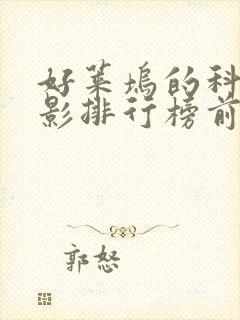 好莱坞的科
影排行榜前
郭怒